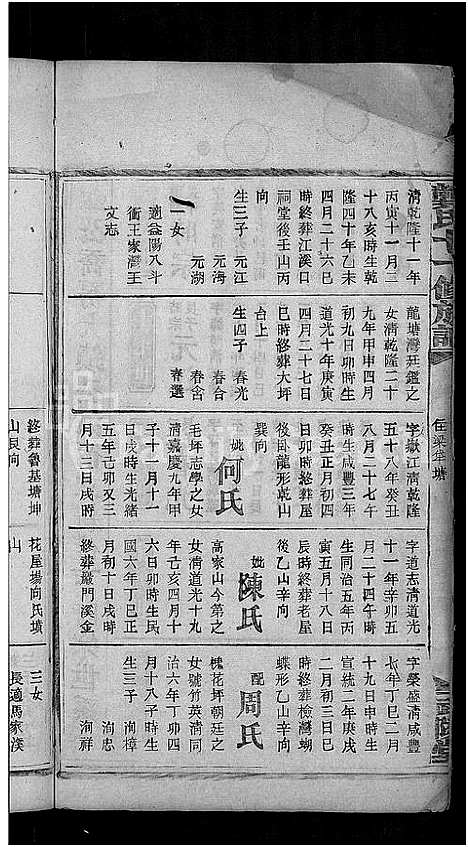 清乾隆十一年
丙寅十一月三
十八亥時生乾
隆四十年乙未
四月二十六巳
時終葬江溪口
祠堂後壬山丙
向
生三子　元江
元海
元湖
一女
適益陽八斗
衝王家灣王
文志
龍塘灣廷鑑之
女清乾隆二十
九年甲申四月
初九日卯時生
道光十年庚寅
四月二十七日
巳時終葬大坪
台上
生四子　春光
春合
春含
春選
字嶽江清乾隆
五十八年癸丑
八月二十七午
時生咸豐三年
癸丑正月初四
日卯時終葬屋
後臥龍形乾山
巽向
妣何氏
毛坪志學之女
清嘉慶九年甲
子十一月十一
日戌時生光緒
五年己卯又三
月十三日戌時
終葬魯基塘坤
山艮向
字道志清道光
十一年辛卯五
月二十四午時
生同治五年丙
寅五月十八日
辰時終葬老屋
後乙山辛向
妣陳氏
高家山今第之
女清道光十九
年己亥四月十
六日卯時生民
國六年丁巳正
月初十日戌時
終葬嚴門溪金
花屋場向氏墳
山
字榮盛清咸豐
七年丁巳二月
十九日申時生
宣統二年庚戌
二月初三日巳
時終葬檢灣蝴
蝶形乙山辛向
配周氏
槐花坪朝廷之
女號竹英清同
治六年丁卯四
月十八子時生
生三子　洵樟
洵忠
洵祥
三女
長適馬家溪